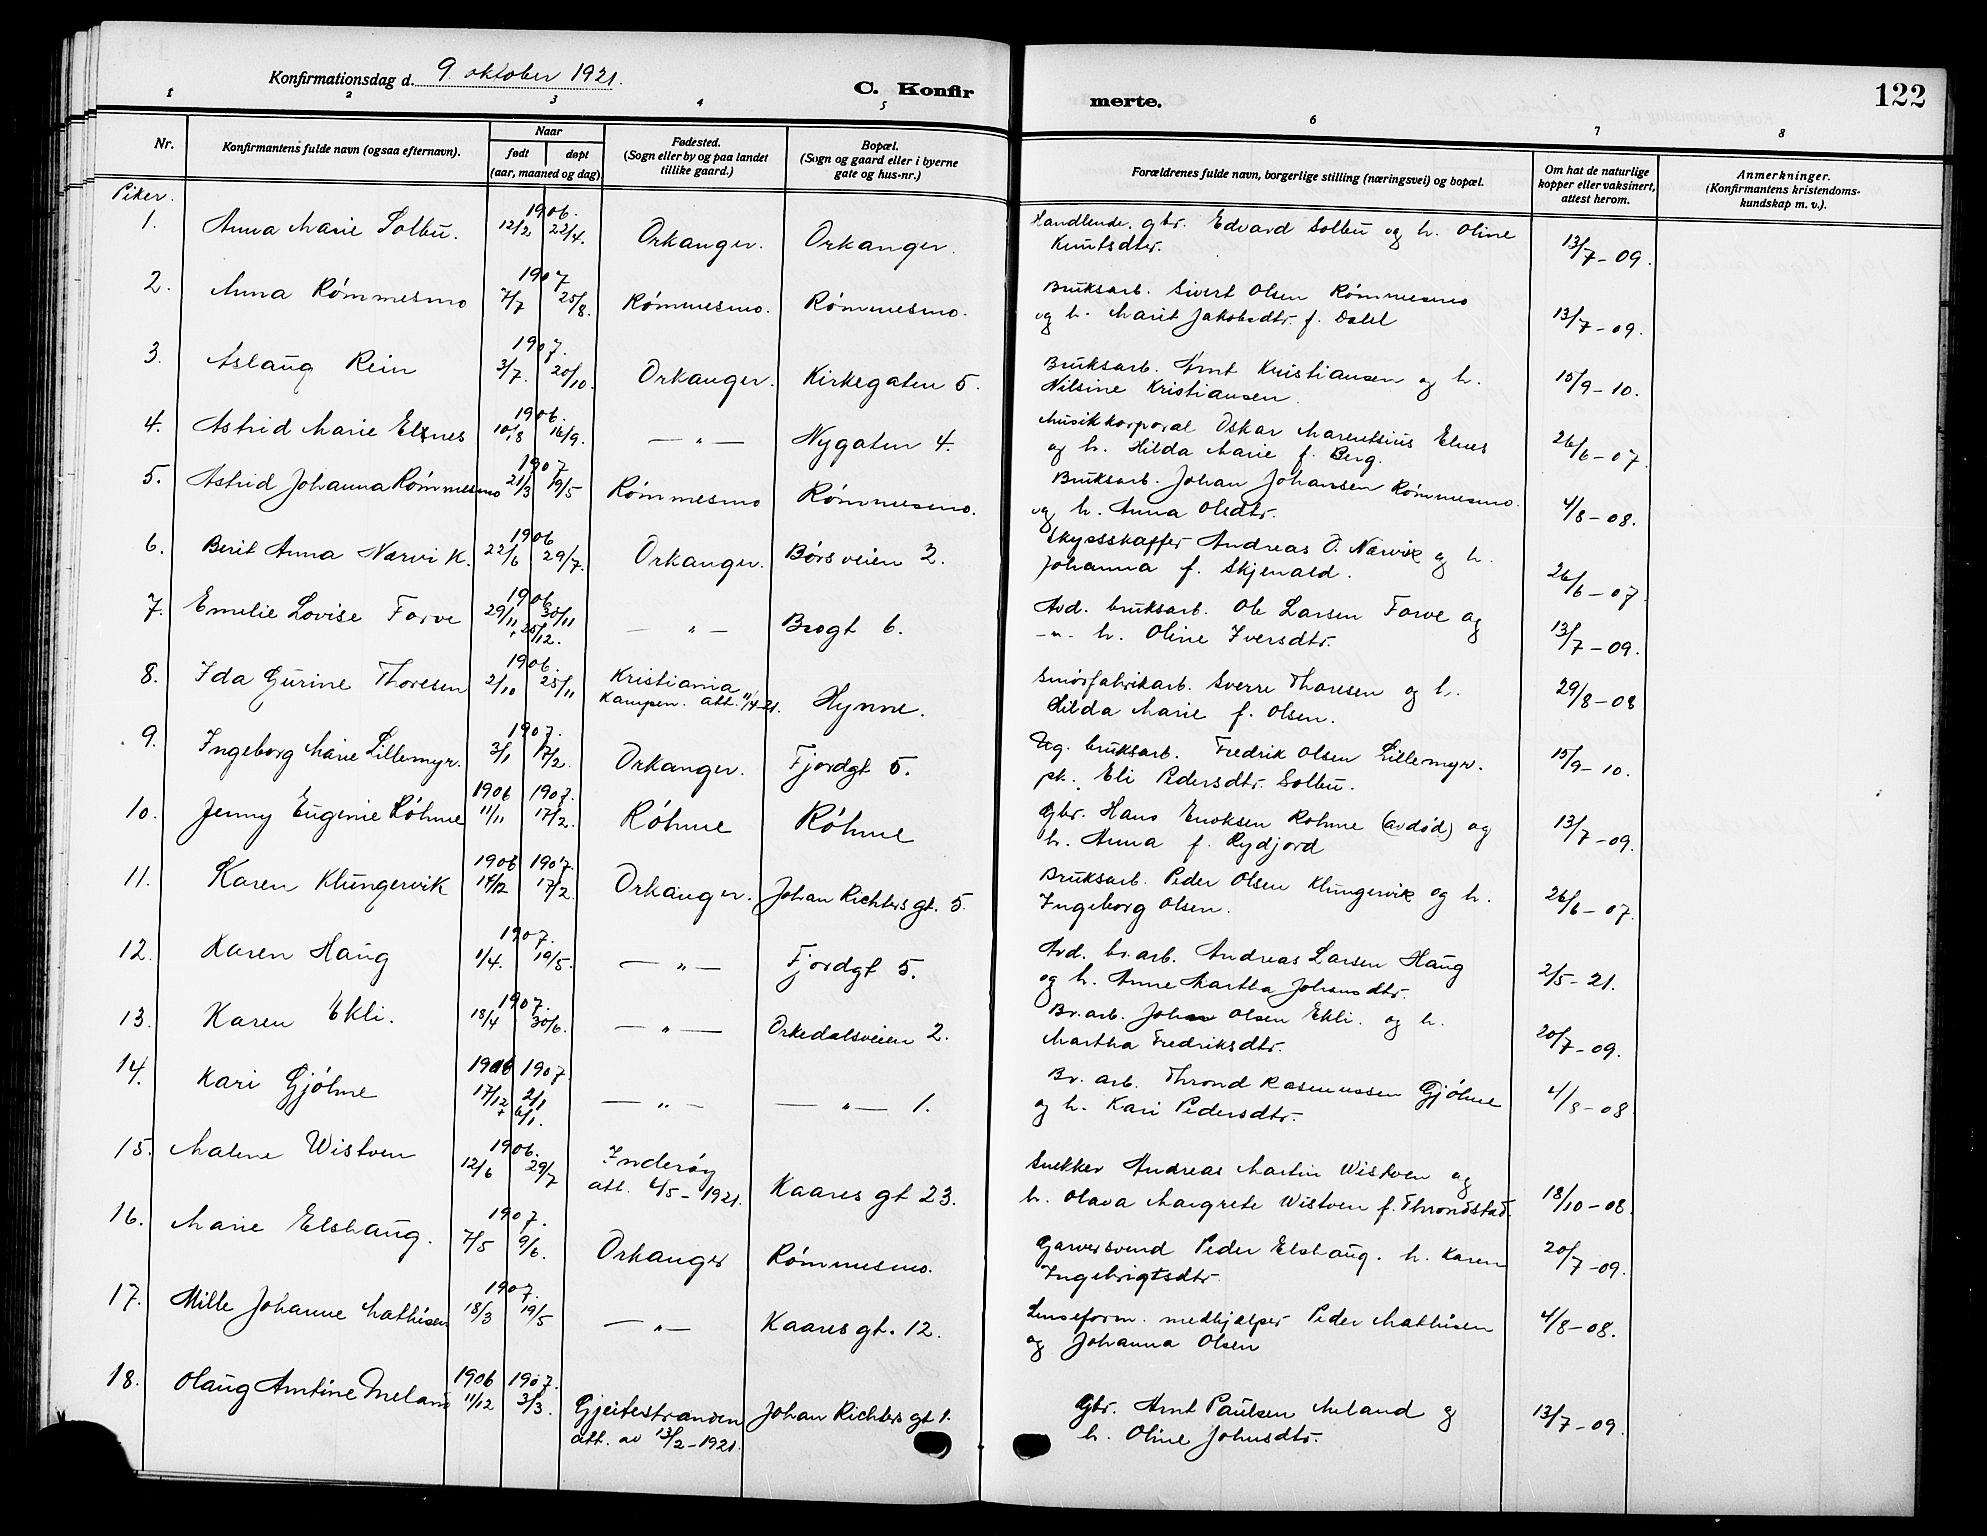 Konfirmationsdag d. 9. oktober 1921.
C. Konfirmerte.
122
1 2 3 4 5 6 7 8
Nr.
Konfirmantens fulde navn (ogsaa efternavn).
Naar
født døpt
(aar, maaned og dag)
Fødested.
(Sogn eller by og paa landet
tillike gaard.)
Bopæl.
(Sogn og gaard eller i byerne
gate og hus-nr.)
Forældrenes fulde navn, borgerlige stilling (næringsvei) og bopæl.
Om hat de naturlige
kopper eller vaksinert,
attest herom.
Anmerkninger.
(Konfirmantens kristendoms-
kundskap m. v.).
Piker.
1. Anna Marie Solbu. 1906. 12/2 22/4. Orkanger. Orkanger. Handlende, gbr. Edvard Solbu og h. Oline
Knutsdtr. 13/7-09.
2. Anna Rømmesmo 1907 7/7 25/8. Rømmesmo. Rømmesmo. Bruksarb. Sivert Olsen Rømmesmo
og h. Marit Jakobsdtr. f. Dalel 13/7-09.
3. Aslaug Rein 1907. 3/7. 20/10. Orkanger. Kirkegaten 5. Bruksarb. Arnt Kristiansen og h.
Nilsine Kristiansen. 15/9-10.
4. Astrid Marie Elsnes 1906. 10/8 16/9. — " — Nygaten 4. Musikkorporal Oskar Marentsius Elnes
og h. Hilda Marie f. Berg. 26/6-07.
5. Astrid Johanna Rømmesmo 1907 21/3 19/5 Rømmesmo Rømmesmo. Bruksarb. Johan Johansen Rømmesmo
og h. Anna Olsdtr. 4/8-08.
6. Berit Anna Nærvik. 1906 22/6 29/7. Orkanger. Børsveien 2. Skydsskaffer Andreas O. Nærvik og h.
Johanna f. Skjenald. 26/6-07.
7. Emelie Lovise Forve 1906 29/11 30/11 + 25/12. — " — Brogt 6. Avd. bruksarb. Ole Larsen Forve og
— " — h. Oline Iversdtr. 13/7-09.
8. Ida Gurine Thoresen 1906. 2/10 25/11 Kristiania
Kampen. att. 11/4-21. Hynne. Smørfabrikarb. Sverre Thoresen og h.
Hilda Marie f. Olsen. 29/8-08
9. Ingeborg Marie Lillemyr. 1907. 3/1 17/2. Orkanger. Fjordgt 5. Ug. bruksarb. Fredrik Olsen Lillemyr.
pk. Eli Pedersdtr. Solbu. 15/9-10.
10. Jenny Eugenie Røhme 1906 11/11 1907. 17/2. Røhme Røhme Gbr. Hans Eriksen Rohme (avdød) og
h. Anna f. Rydjord 13/7-09.
11. Karen Klungervik 1906 14/12 1907. 17/2. Orkanger. Johan Richters gt. 5. Bruksarb. Peder Olsen Klungervik og h.
Ingeborg Olsen. 26/6-07.
12. Karen Haug 1907. 1/4. 19/5. — " — Fjordgt 5. Avd. br.arb. Andreas Larsen Haug
og h. Anne Martha Johansdtr. 2/5-21.
13. Karen Ekli. 1907. 18/4 30/6. — " — Orkedalsveien 2. Br.arb. Johan Olsen Ekli. og h.
Martha Fredriksdtr. 20/7-09.
14. Kari Gjølme 1906 17/12 1907. 2/1 + 6/1. — " — — " — 1. Br. arb. Thrond Rasmussen Gjølme
og h. Kari Pedersdtr. 4/8-08.
15. Malene Wistven 1906. 12/6 29/7 Inderøy
att. 4/5-1921. Kaares gt 23. Snekker Andreas Martin Wistven og
h. Olava Margrete Wistven f. Throndstad. 18/10-08.
16. Marie Elshaug. 1907. 7/5 9/6. Orkanger Rømmesmo. Garversvend Peder Elshaug. h. Karen
Ingebrigtsdtr. 20/7-09.
17. Mille Johanne Mathisen 1907. 18/3 19/5 — " — Kaares gt. 12. Lenseform. medhjælper Peder Mathisen
og Johanna Olsen 4/8-08.
18. Olaug Arntine Meland 1906 11/12 1907. 3/3. Gjeitestranden
att. av 13/2-1921. Johan Richters gt 1. Gbr. Arnt Paulsen Meland og
h. Oline Johnsdtr. 13/7-09.